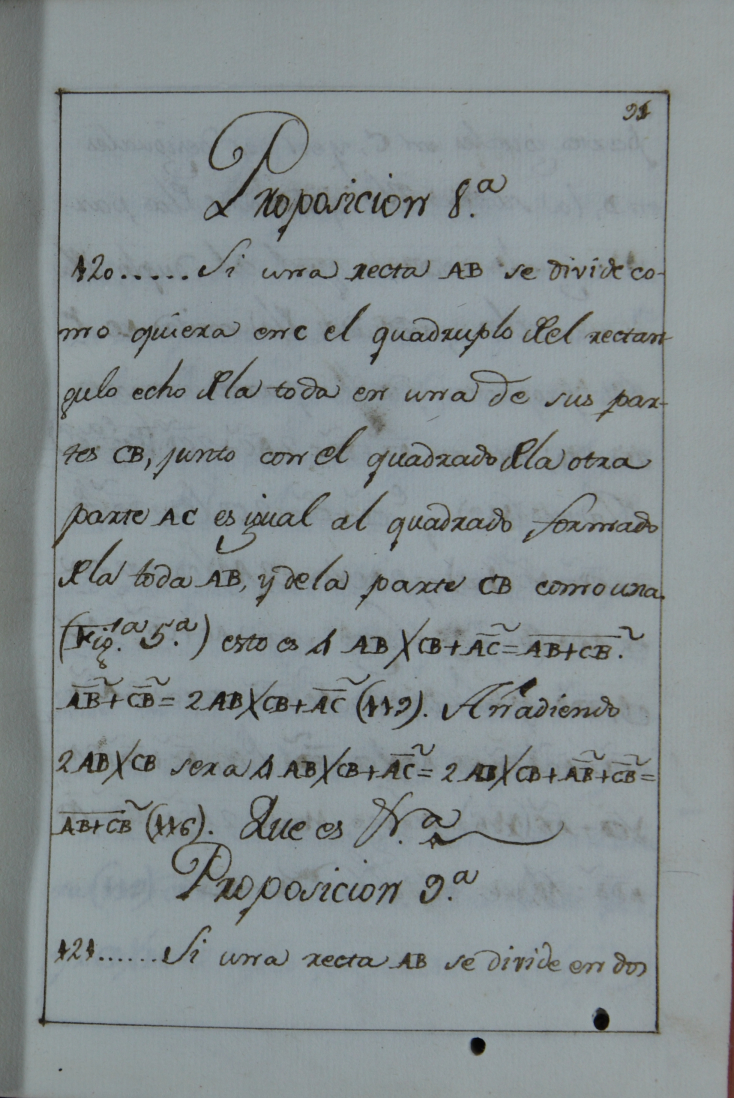 91
Proposicion 8.ª
120..... Si una recta AB se divide co-
mo quiera en C el quadruplo del rectan-
gulo echo dela toda en una de sus par-
tes CB, junto con el quadrado dela otra
parte AC es igual al quadrado formado
dela toda AB, y de la parte CB como una
(Fig.ª 5.ª) esto es 4 AB X CB + A͞C² = A͞B͞+͞C͞B².
A͞B² + C͞B² = 2 AB X CB + A͞C² (119). Añadiendo
2 AB X CB sera 4 AB X CB + A͞C² = 2 AB X CB + A͞B² + C͞B² =
A͞B͞+͞C͞B² (116). Que es
Proposicion 9.ª
121...... Si una recta AB se divide en dos